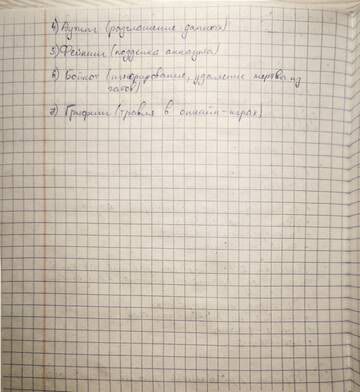 4) Аутинг (разглашение данных)
5) Фейкинг (подделка аккаунта)
6) Бойкот (игнорирование, удаление жертвы из
чатов)
7) Грифинг (травля в онлайн-играх)